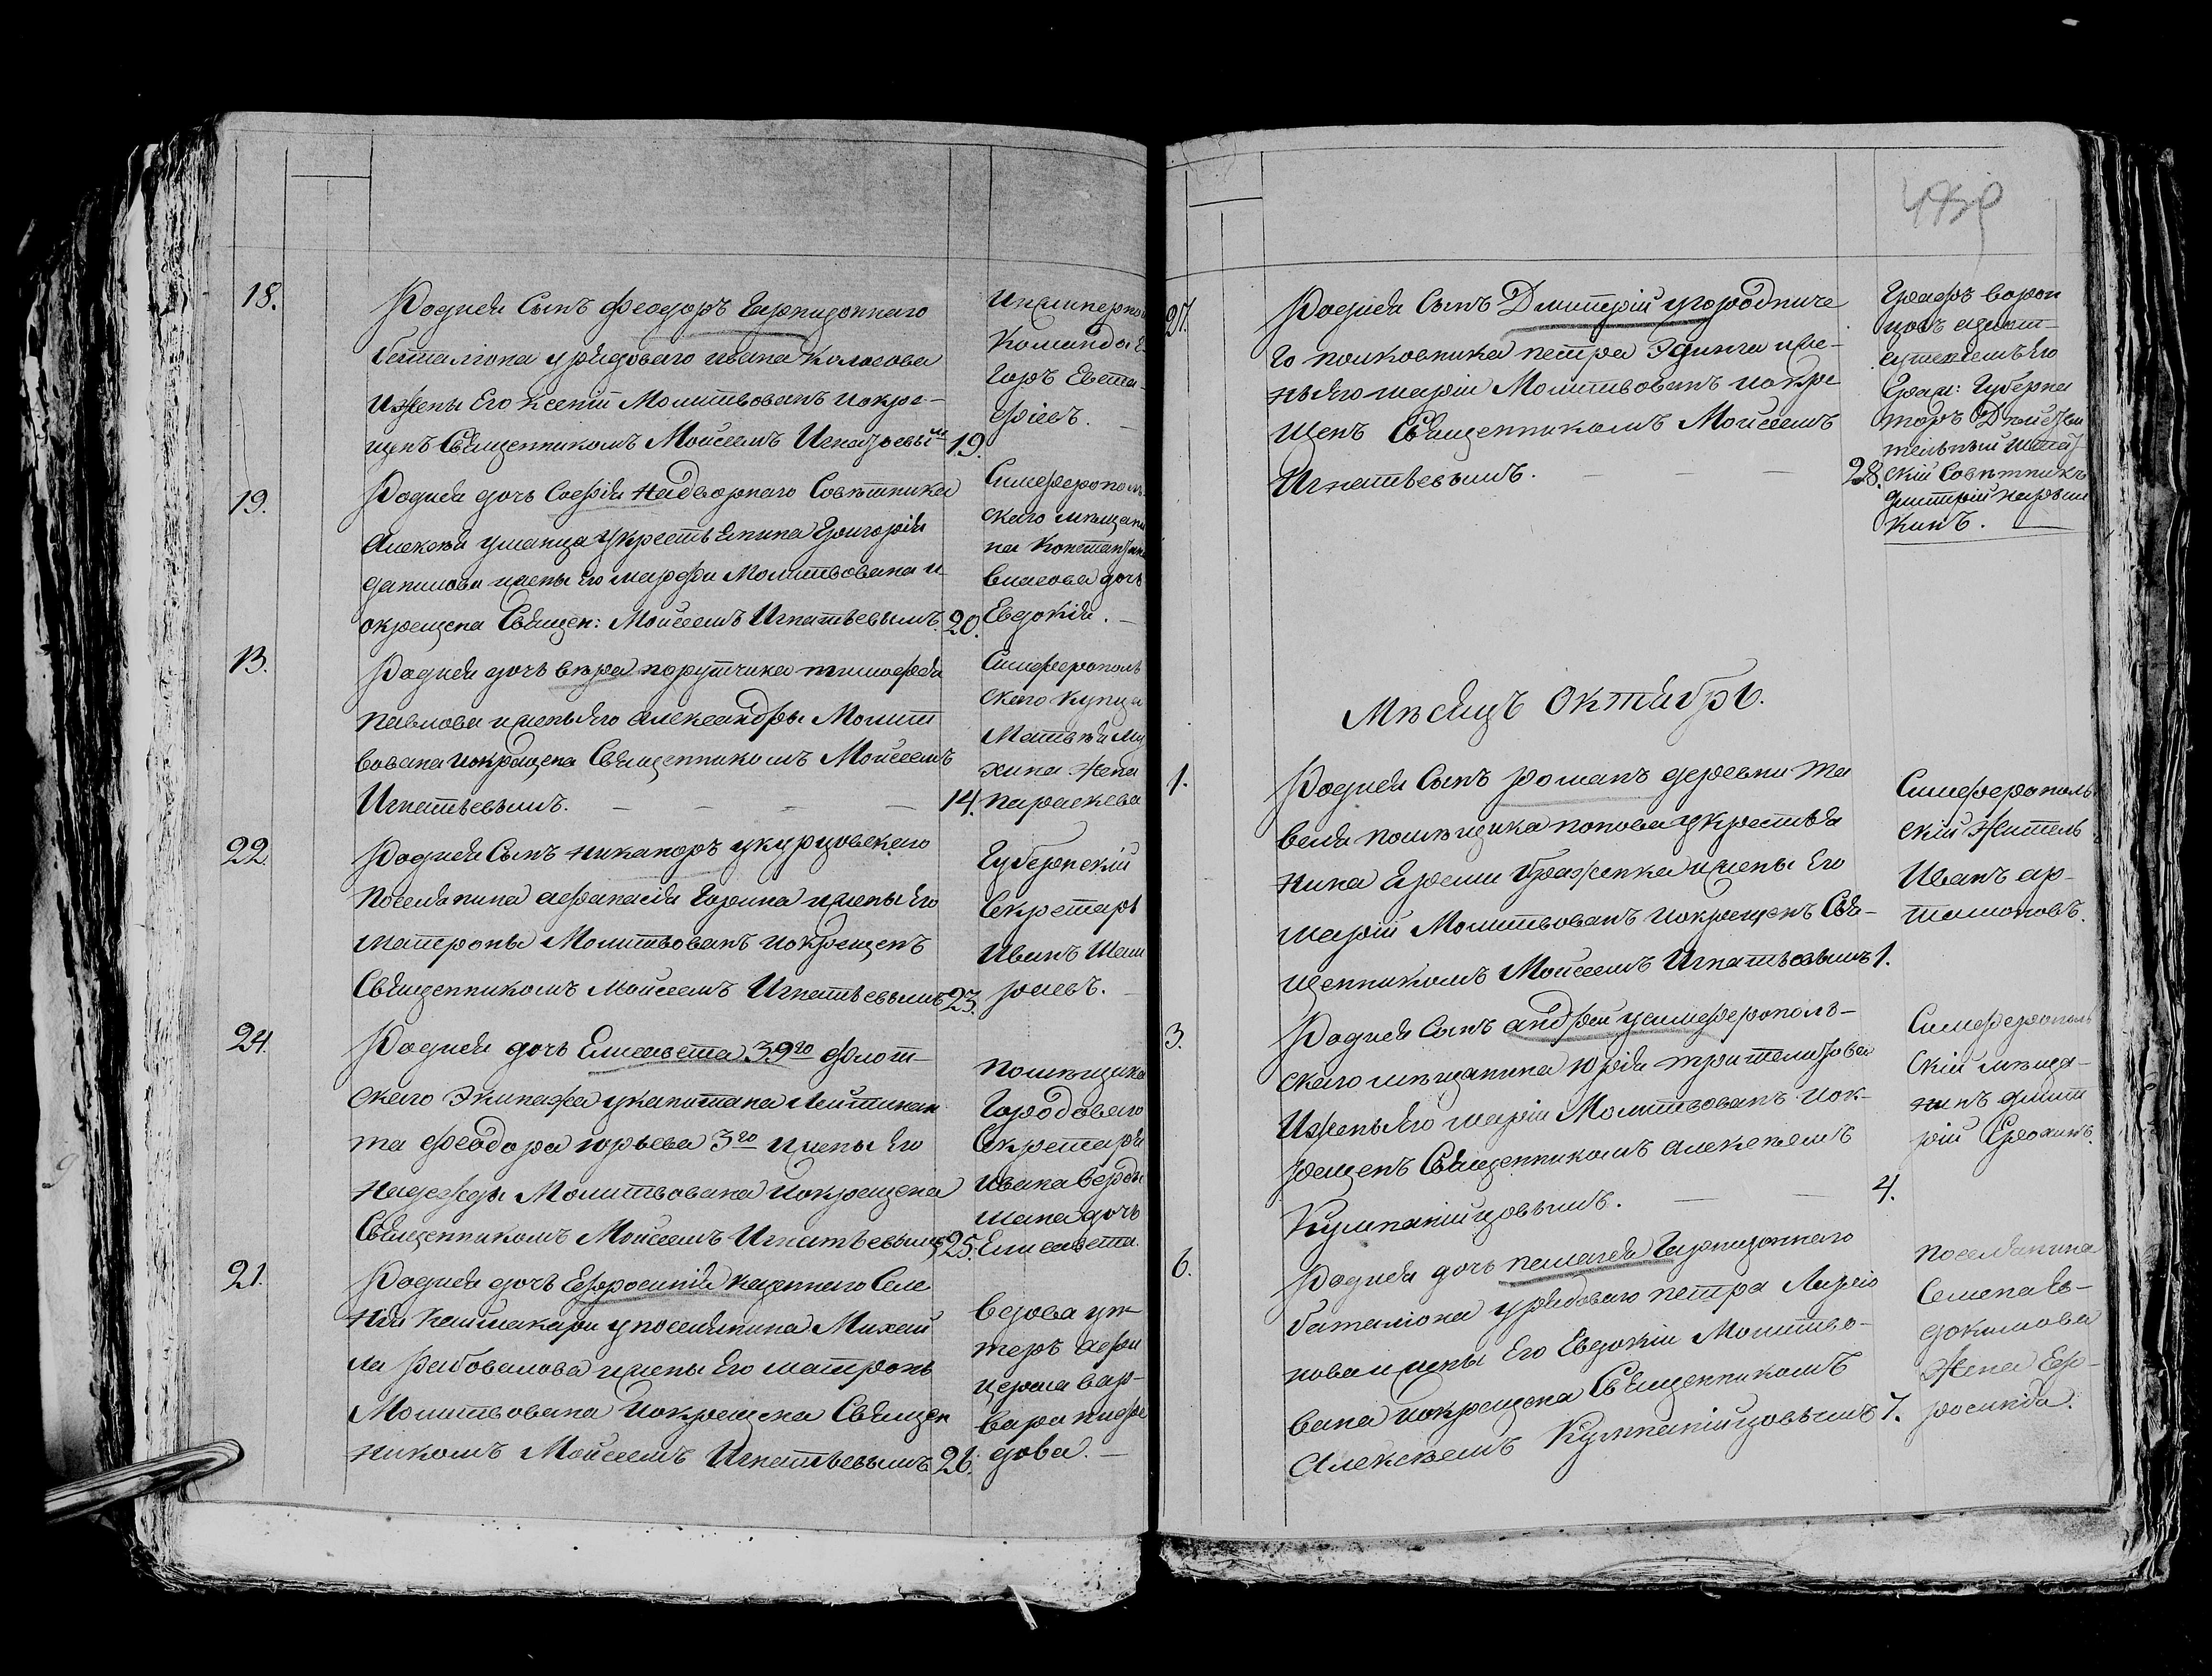 18.
Родися Сынъ Феодоръ Гарнизоннаго
баталіона у рядоваго ивана Колосова
Ижены Его Ксеніи Молитвованъ иокре-
щенъ Священникомъ Моисеемъ Игнатьевымъ 19.
Команда Е
горъ Евста
фіевъ.
19.
Родися дочь Софія Надворнаго Совѣтника
Алексѣя уманца укрестьЕнина Григорія
данилова ижены Его марфы Молитвована и
окрещена Священ: Моисеемъ Игнатьевымъ. 20.
Симферополь
скаго мѣщани
на Констан
власова дочь
Евдокія.
13.
Родися дочь вѣра порутчика тимофея
павлова ижены Его александры Молит
вована иокрещена Священникомъ Моисеемъ
Игнатьевымъ. 14.
Симферополь
скаго купца
Матвѣя Му
хина жена
параскева
22.
Родися Сынъ никаноръ укурцовскаго
поселянина афанасія Горина ижены Его
матроны Молитвованъ иокрещенъ
Священникомъ Моисеемъ Игнатьевымъ 23.
Губернскій
Секретарь
Иванъ
24.
Родися дочь Елисавета 39го флот-
скаго Экипажа укапитана лейтинан
та феодора юрьева 3го ижены Его
надежды Молитвована иокрещена
Священникомъ Моисеемъ Игнатьевымъ 25.
помѣщика
Городоваго
Секретаря
ивана
дочь
Елисавета.
21.
Родися дочь Ефросинія казеннаго Селе
нія Каймакари упоселянина Михаи
ла рябовалова ижены Его матроны
Молитвована иокрещена Священ
никомъ Моисеемъ Игнатьевымъ 26.
везова ун
теръ афи
цера вар-
вара нефе
дова.
27.
Родися Сынъ Дмитрій угороднича
го полковника петра Эдинга иже-
ны Его маріи Молитвованъ иокре
щенъ Священникомъ Моисеемъ
Игнатьевымъ. 28.
Графъ ворон
цовъ
Его
Граж: Губерна
торъ Дѣйстви
тельный штат
скій Совѣтникъ
дмитрій нарыш
кинъ.
Мѣсяцъ Октябрь.
1.
Родися Сынъ романъ деревни та
веля помѣщика попова укрестья
нина Ереми ижены Его
маріи Молитвованъ иокрещенъ Свя-
щенникомъ Моисеемъ Игнатьевымъ 1.
Симферополь
скій житель
Иванъ ар-
тамоновъ.
3.
Родися Сынъ андрей усимферополь-
скаго мѣщанина юрія
Ижены Его маріи Молитвованъ иок-
рещенъ Священникомъ алексѣемъ
Кумпанійцовымъ. 4.
Симферополь
скій мѣща-
нинъ дмит
рій
6.
Родися дочь пелагея Гарнизоннаго
баталіона урядоваго петра Ларіо
нова ижены Его Евдокіи Молитво-
вана иокрещена Священникомъ
Алексѣемъ Кумпанійцовымъ 7.
поселянина
Семена Ев-
докимова
жена Еф-
росинія.